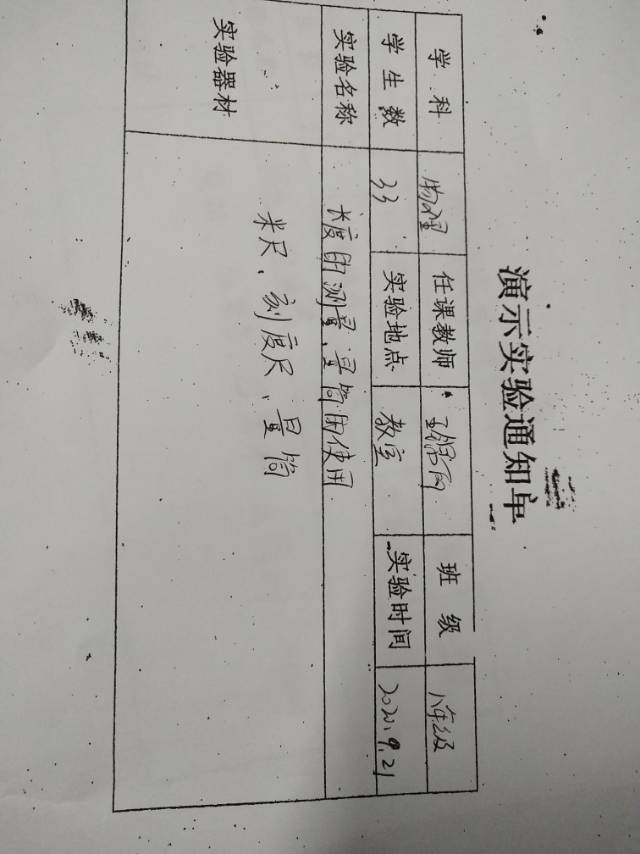 演示实验通知单
学科 物理 任课教师 班级 八年级
学生数 33 实验地点 教室 实验时间 2020.9.21
实验名称 长度的测量、量筒的使用
实验器材 米尺、刻度尺、量筒